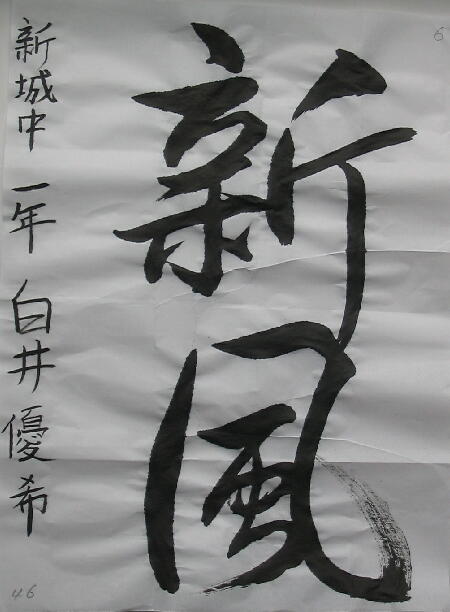 新風
新城中 一年 白井優希
6
46